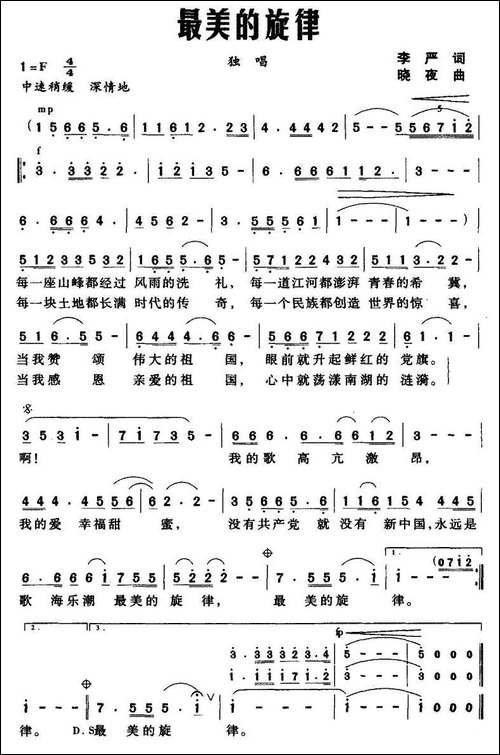 最美的旋律
独 唱
1=F 4/4
李 严 词
晓 夜 曲
中速稍缓 深情地
mp
(1 5 6 6 5. 6 | 1 1 6 1 2. 2 3 | 4. 4 3 2 2 | 5 - - 5 5 6 7 1 2
f
3. 3 3 2 2. | 1 2 1 3 5 - | 6. 6 6 6 1 1. 2 | 3 - - - |
6. 6 6 6 4. | 4 5 6 2 - | 3. 5 5 5 6 1 | 1 - - - | 1 - - - )
5 1 2 3 3 5 3 2 | 1 6 5. 6 3 - | 5 7 1 2 2 4 3 2 | 5 1 3. 2 2 -
每一座山峰都经过 风雨的洗 礼, 每一道江河都澎湃 青春的希 冀,
每一块土地都长满 时代的传 奇, 每一个民族都创造 世界的惊 喜,
5 1 6. 5 5 | 1 4 4. 6 6 - | 5 5 6 6 7 1 2 2 2 | 6 1. 1 1 -
当我赞 颂 伟大的祖 国, 眼前就升起鲜红的 党旗。
当我感 恩 亲爱的祖 国, 心中就荡漾南湖的 涟漪。
3 5 3 1 - | 7 1 7 3 5 - | 6 6 6. 6 6 1 2 | 3 - - -
啊! 我的歌 高 亢 激 昂,
4 4 4. 4 5 5 6 | 6 2. 2 - | 3 5 6 6 5. 6 | 1 1 6 1 5 4 4 4
我的爱 幸福甜 蜜, 没有共产党 就 没有 新中国,永远是
1.
6. 6 6 6 1 7 5 5 | 5 2 2 2 - | 7. 5 5 5. 1 | 1 - - (0 7 1 2
歌 海乐潮 最美的 旋 律, 最 美的旋 律。
2. 3.
fp
3. 3 3 3 2 3. 4 | 5 - - - | 5 0 0 0
1. 1 1 1 7 1. 2 | 3 - - - | 5 0 0 0
1 - - - | 7. 5 5 5. 1 | 1 - - - | 1 - - - | 1 0 0 0
律。 D.S最 美的旋 律。